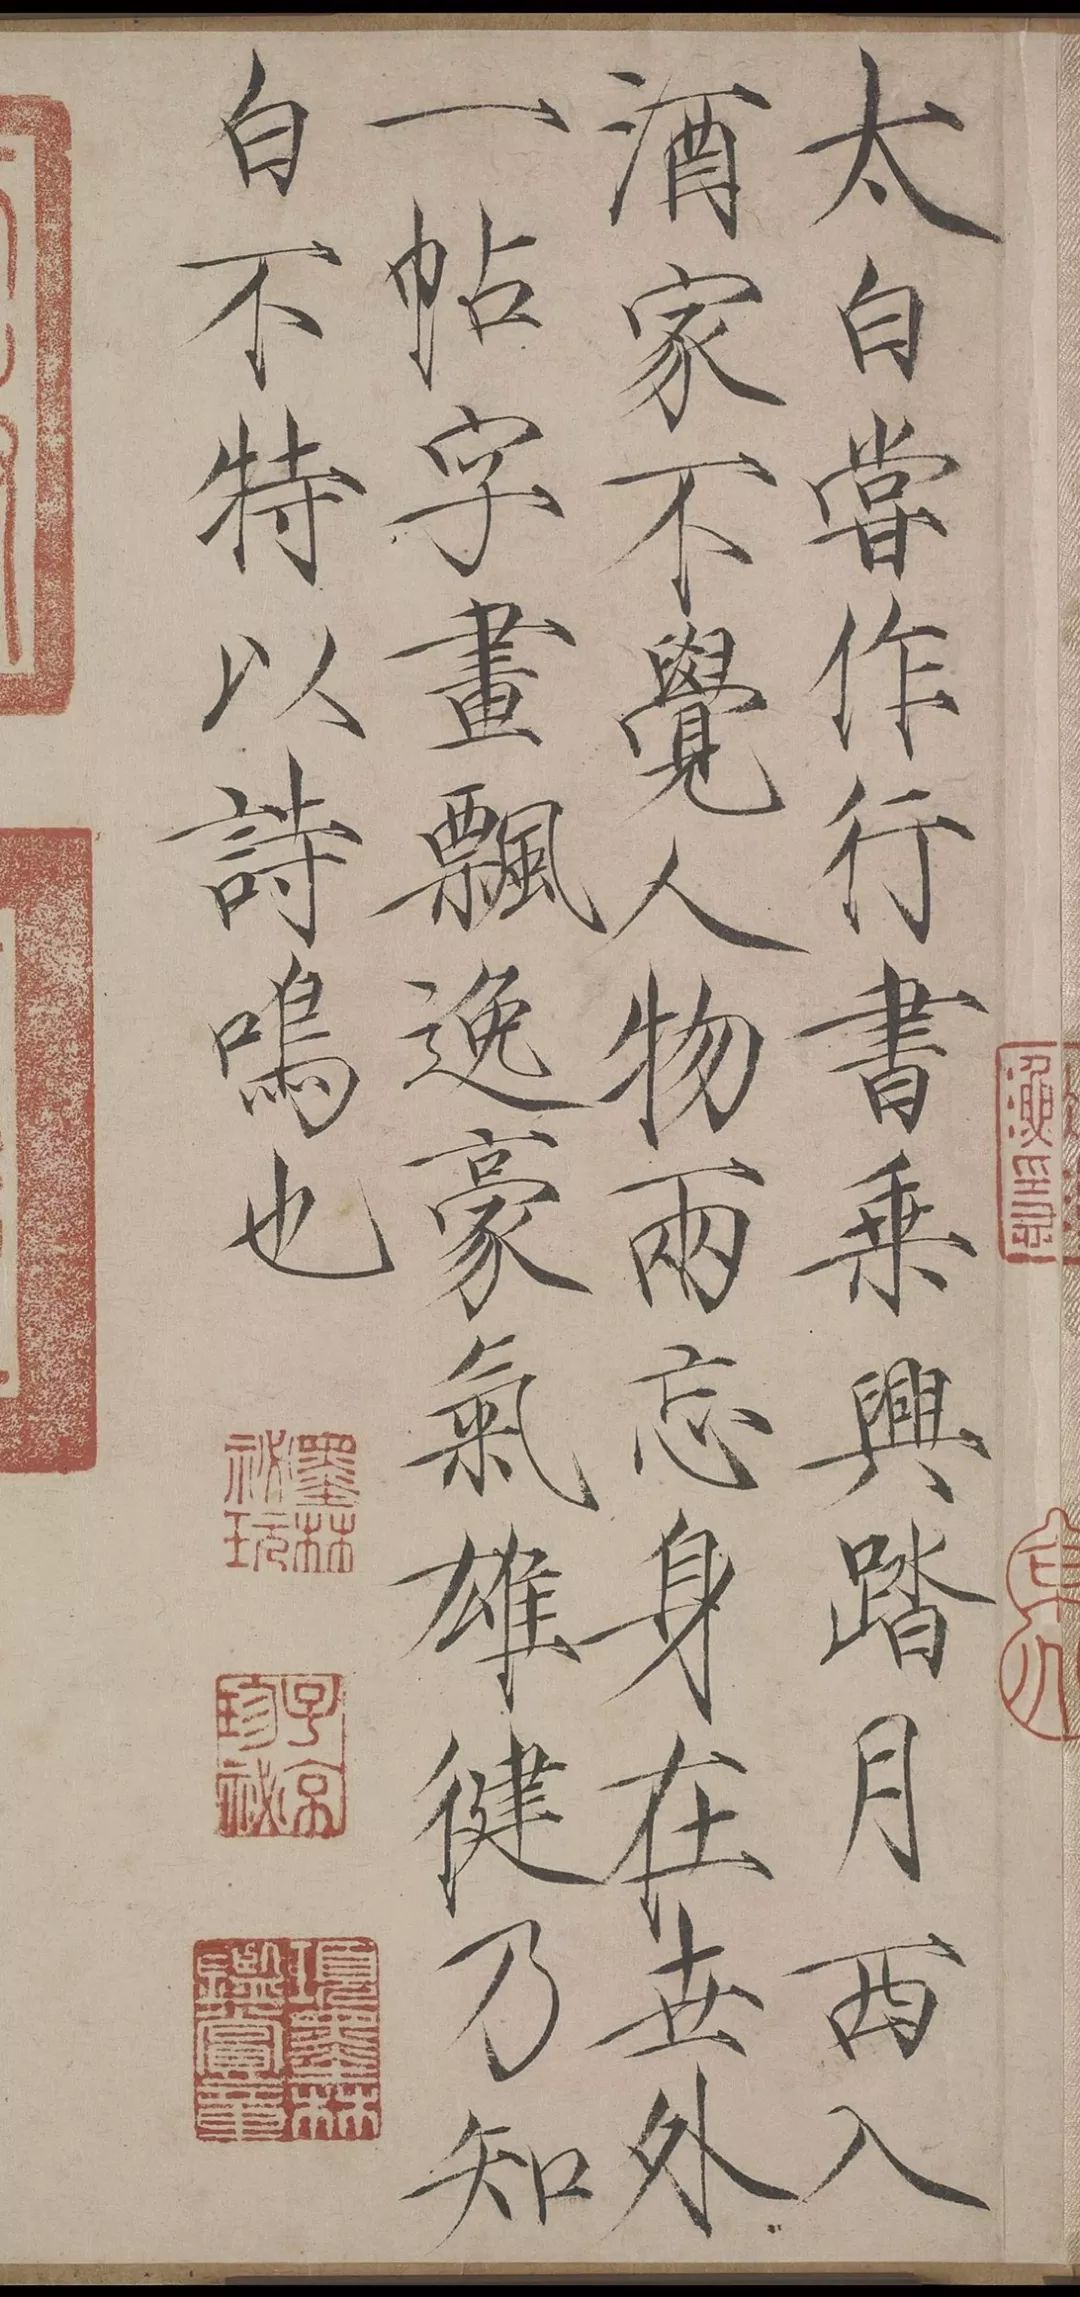 太白嘗作行書乗興踏月西入
酒家不覺人物兩忘身在世外
一帖字畫飄逸豪氣雄健乃知
白不特以詩鳴也
墨林祕玩
子京珍祕
項墨林鑑賞章